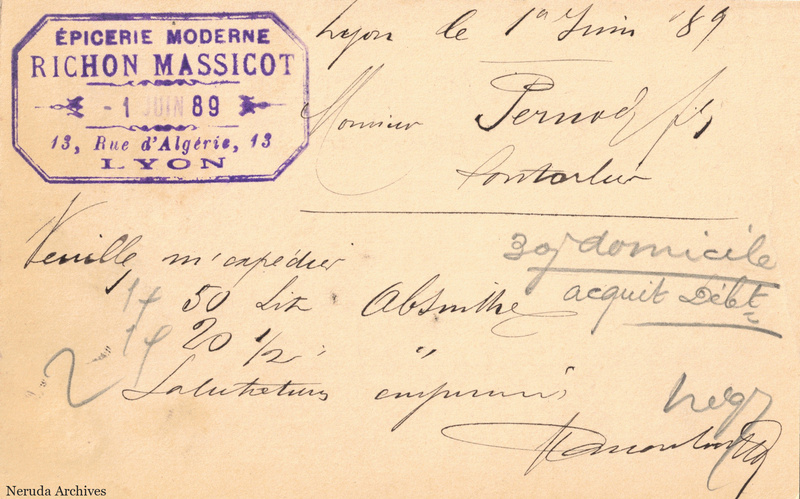 ÉPICERIE MODERNE
RICHON MASSICOT
- 1 JUIN 89
13, Rue d'Algérie, 13
LYON
Lyon le 1er Juin 89
Monsieur Pernod fils
Pontarlier
Veuillez m'expédier
50 Lit Absinthe
20 1/2 "
Salutations empressées
30j domicile
acquit Débt
Neruda Archives